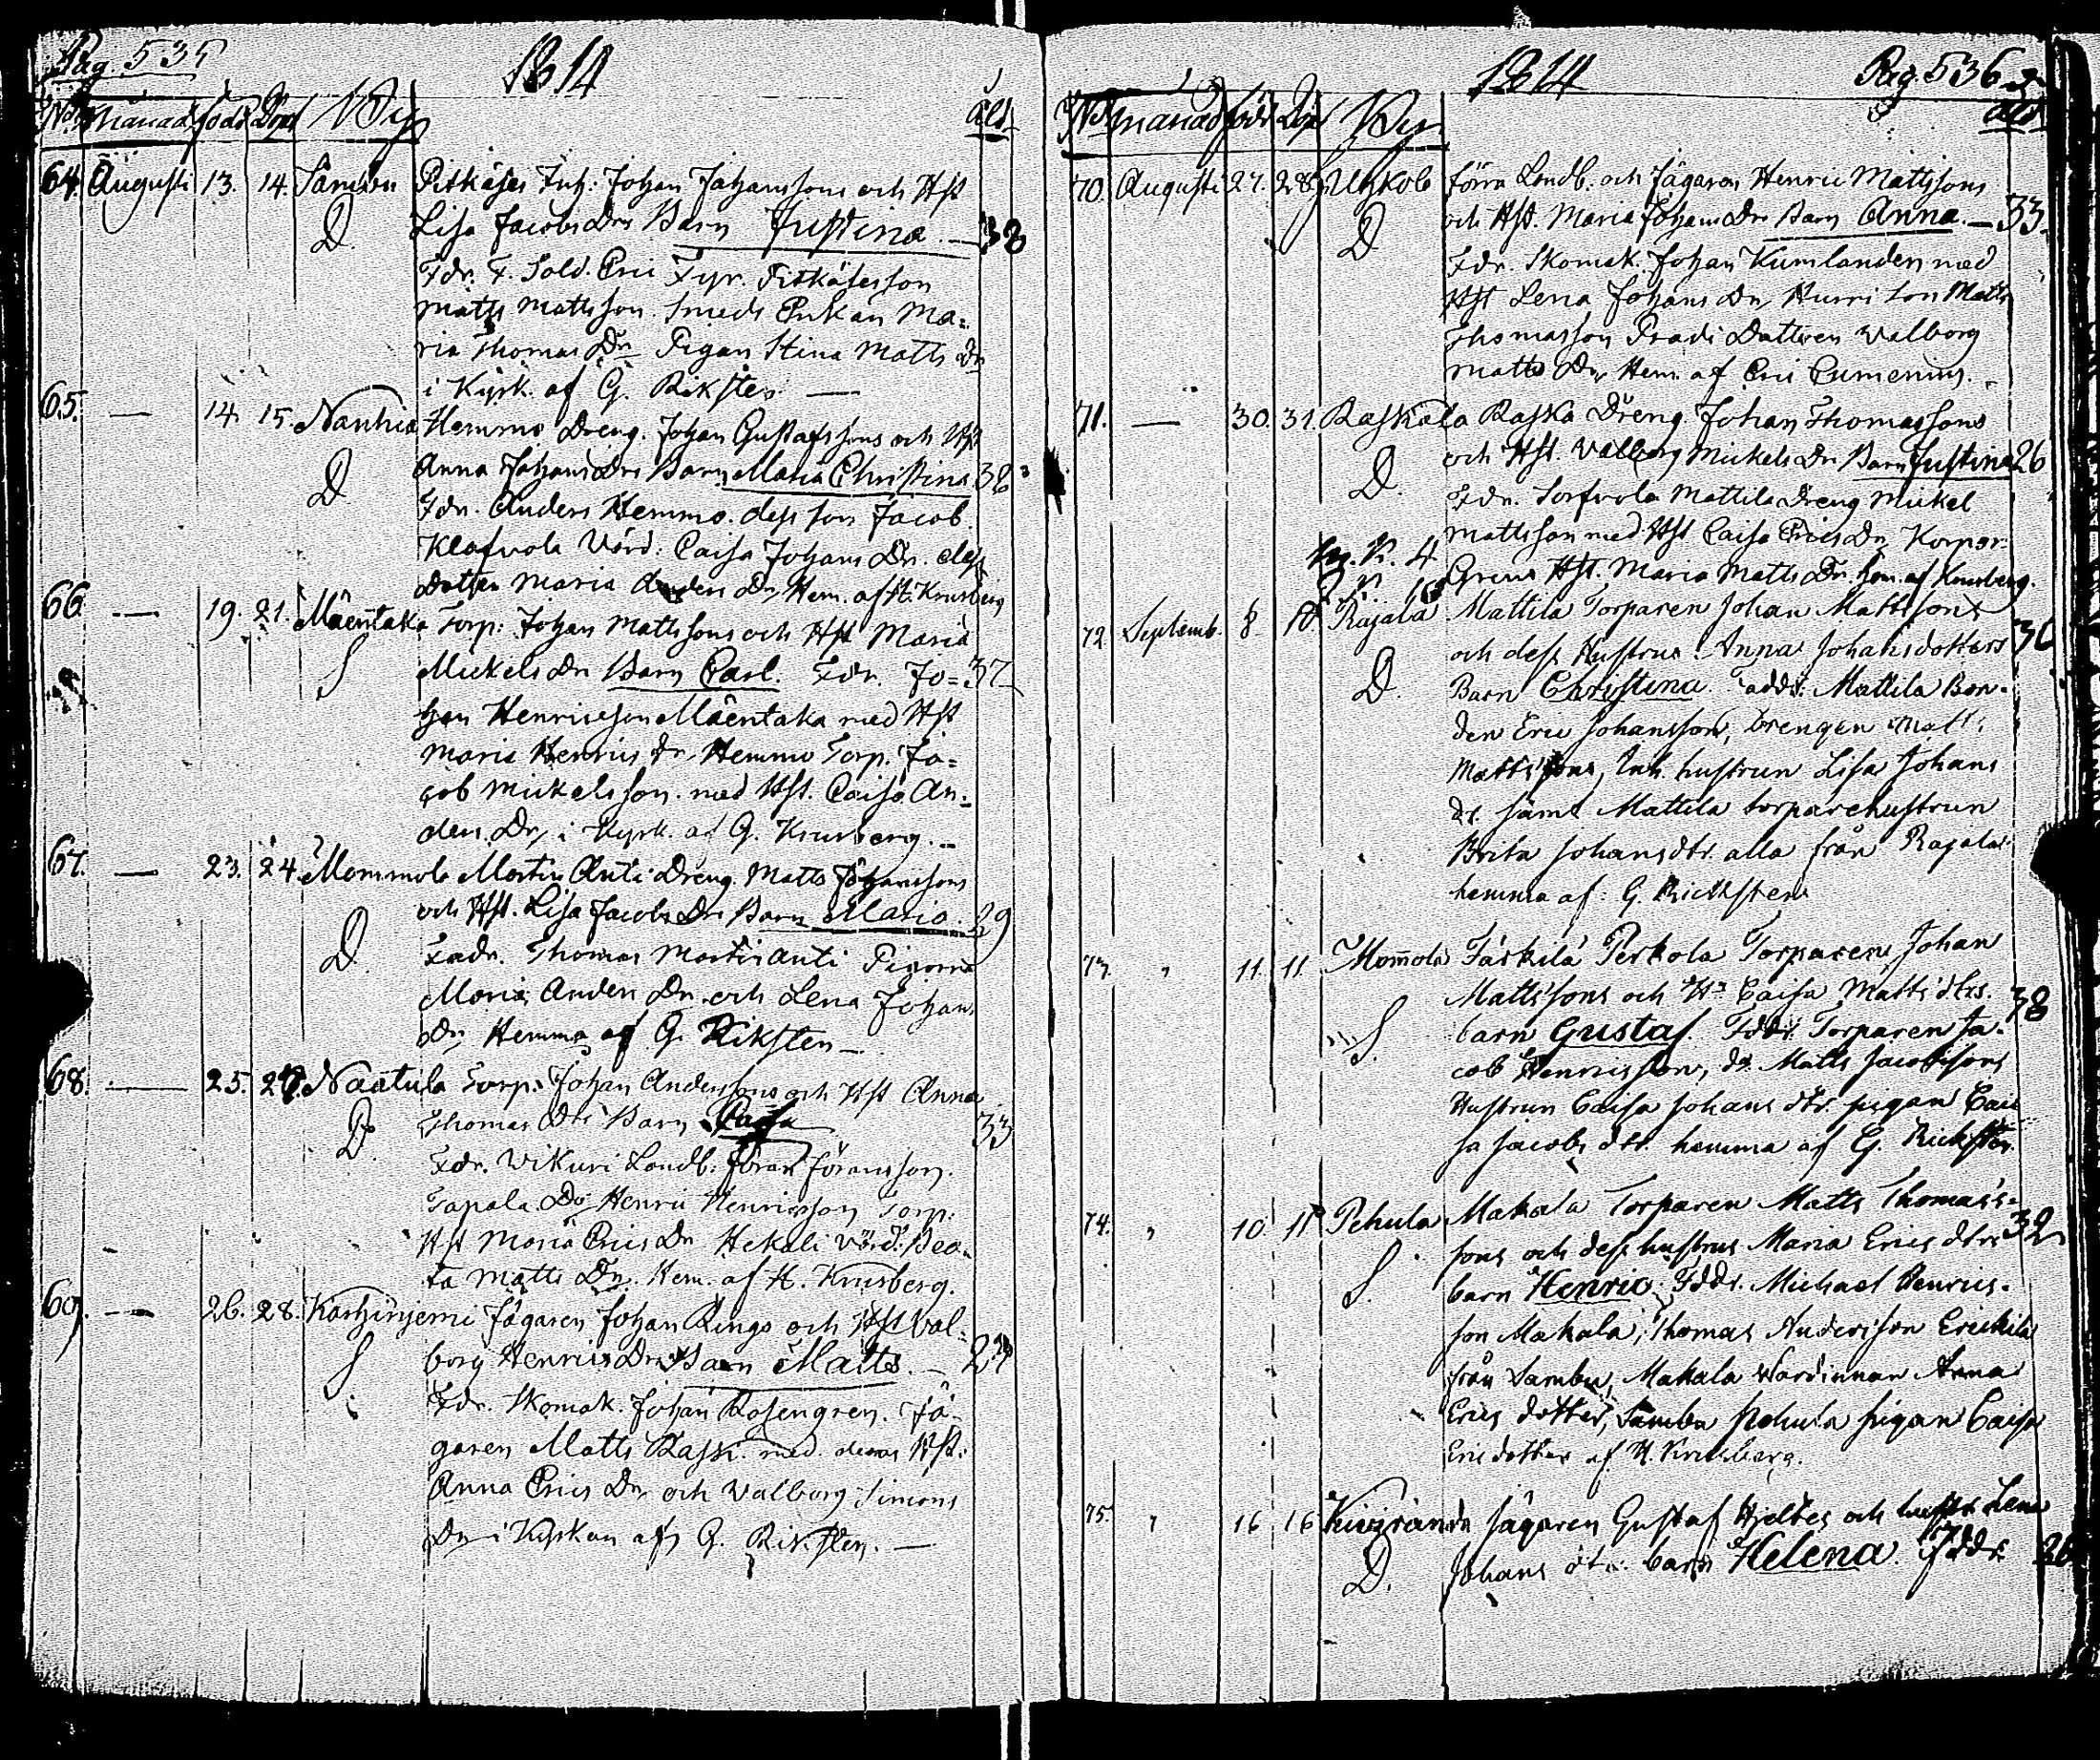 Pag. 535
1814
No månad född Döpt By
åld.
64. Augusti 13. 14. Sambu Pitkäses Inh: Johan Johanssons och Hst
D. Lisa Jacobs Drs Barn Justina. — 38
Fdr. F. Sold. Eric Fyr. Pitkäsesson
Matts Mattsson. Smeds Enkan Ma-
ria Thomas Dr Pigan Stina Matts Dr
i Kyrk. af G. Riksten —
65. — 14. 15. Nanhia Hemmo Dreng. Johan Gustafssons och Hst
D Anna Johans Drs Barn Maria Christina 32
Fdr. Anders Hemmo. dess son Jacob
Värd: Caisa Johans Dr. dess
Dotter Maria Anders Dr, Hem. af H. Krusberg
66 — 19. 21. Mäentaka Torp: Johan Mattssons och Hst Maria
S Mickels Dr Barn Carl. Fdr. Jo= 37
han Henricsson Mäentaka med Hst
Maria Henrics Dr, Hemmo Torp. Ja=
cob Mickelsson. med Hst. Caisa An-
ders Dr, i Kyrk. af G. Krusberg. —
67. — 23. 24. Mommola Martin Anti Dreng. Matts Johanssons
D. och Hst. Lisa Jacobs Drs Barn Maria. 29
Fadr. Thomas Martin Anti Pigorna
Maria Anders Dr. och Lena Johans
Dr, Hemma af G. Riksten —
68. — 25. 27. Naatula Torp: Johan Anderssons och Hst Anna
D. Thomas Drs Barn Caisa 33
Fdr. Vikuri Landb: Göran Göransson.
Tapala Do Henric Henricsson Torp:
Hst Maria Erics Dr Hekali Värd: Bea-
ta Matts Dr. Hem. af H. Krusberg.
69. — 26. 28. Karhinjemi Jägaren Johan Rings och Hst Val-
S borg Henrics Drs Barn Matts. — 29
Fdr. Skomak. Johan Rosengren. Jä-
garen Matts Rask. med deras Hst:
Anna Erics Dr, och Valborg Simons
Dr i Kyrkan af G. Riksten. —
1814
Pag. 536
No månad född Döpt By
åld
70. Augusti 27. 28. Uhkola förra Landb. och Jägaren Henric Mattssons
D och Hst. Maria Johans Drs Barn Anna. — 33.
Fdr. Skomak. Johan Kumlanden med
Hst Lena Johans Dr, Hurri Son Matts
Thomasson Pradi Dottren Valborg
Matts Dr, Hem. af Eric Eumenius.
71. — 30. 31. Raskala Raska Dreng. Johan Thomassons
D. och Hst. Valborg Mickels Drs Barn Justina 26
Fdr. Sorfvola Mattila Dreng Mickel
Mattsson med Hst Caisa Erics Dr, Korpor:
Grens Hst. Maria Matts Dr. Hem. af Krusberg.
72. Septemb. 8 10. Rajala Mattila Torparen Johan Mattssons
och dess Hustrus Anna Johansdotters 30
D. Barn Christina. Faddr: Mattila Bon-
den Eric Johansson, Drengen Matts
Mattssons, Inh. hustrun Lisa Johans
dr. samt Mattila torparehustrun
Brita Johansdtr. alla från Rajala
hemma af: G. Rickstén
73. " 11. 11 Mommola Färkilä Perkola Torparen, Johan
Mattssons och Hs Caisa Matts dtrs. 38
S. barn Gustaf. Fddr. Torparen Ja-
cob Henricsson, do. Matts Jacobssons
Hustrun Caisa Johans dtr. pigan Cai-
sa Jacobs dtr. hemma af G. Rickstén.
74. " 10. 11 Pehula Makala Torparen Matts Thomas-
sons och dess hustrus Maria Erics dtrs 32
S. barn Henric. Fddr. Michael Henrics-
son Makala, Thomas Andersson Erickila
från Sambu, Makala Wärdinnan Anna
Erics dotter, Sambu Pehula pigan Caisa
Ericsdotter af H. Krusberg.
75. " 16 16 Jägaren Gustaf Hjeltes och hustr. Lena
D. Johans dtrs. barn Helena. Fddr. 26